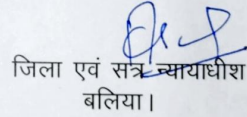 जिला एवं सत्र न्यायाधीश
बलिया।